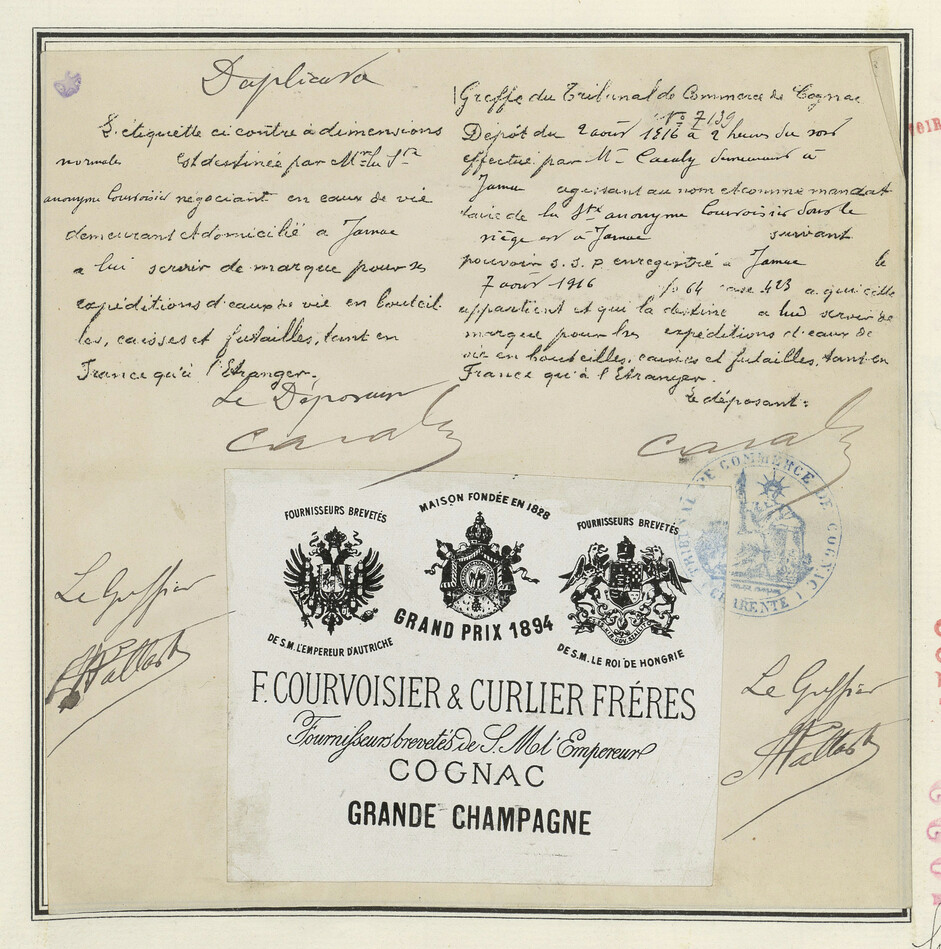 Duplicata
L'étiquette ci contre à dimensions
normales est destinée par Mrs la Sté
anonyme Courvoisier négociant en eaux de vie
demeurant et domicilié à Jarnac
a lui servir de marque pour ses
expéditions d'eaux de vie en bouteil
les, caisses et futailles, tant en
France qu'à l'Etranger.
Le Déposant
Greffe du Tribunal de Commerce de Cognac
No 7139
Dépôt du 2 août 1916 à 2 heures du soir
effectué par Mr demeurant à
Jarnac agissant au nom et comme mandat
taire de la Sté anonyme Courvoisier dont le
siège est à Jarnac suivant
pouvoir s.s.p. enregistré à Jarnac le
7 août 1916 fo 64 case 423 a qui elle
appartient et qui la destine a lui servir de
marque pour les expéditions d'eaux de
vie en bouteilles, caisses et futailles, tant en
France qu'à l'Etranger.
Le déposant:
TRIBUNAL DE COMMERCE DE COGNAC
CHARENTE
FOURNISSEURS BREVETÉS
DE S.M. L'EMPEREUR D'AUTRICHE
MAISON FONDÉE EN 1828
GRAND PRIX 1894
FOURNISSEURS BREVETÉS
DE S.M. LE ROI DE HONGRIE
F. COURVOISIER & CURLIER FRÉRES
Fournisseurs brevetés de S. M. l'Empereur
COGNAC
GRANDE CHAMPAGNE
Le Greffier
Le Greffier